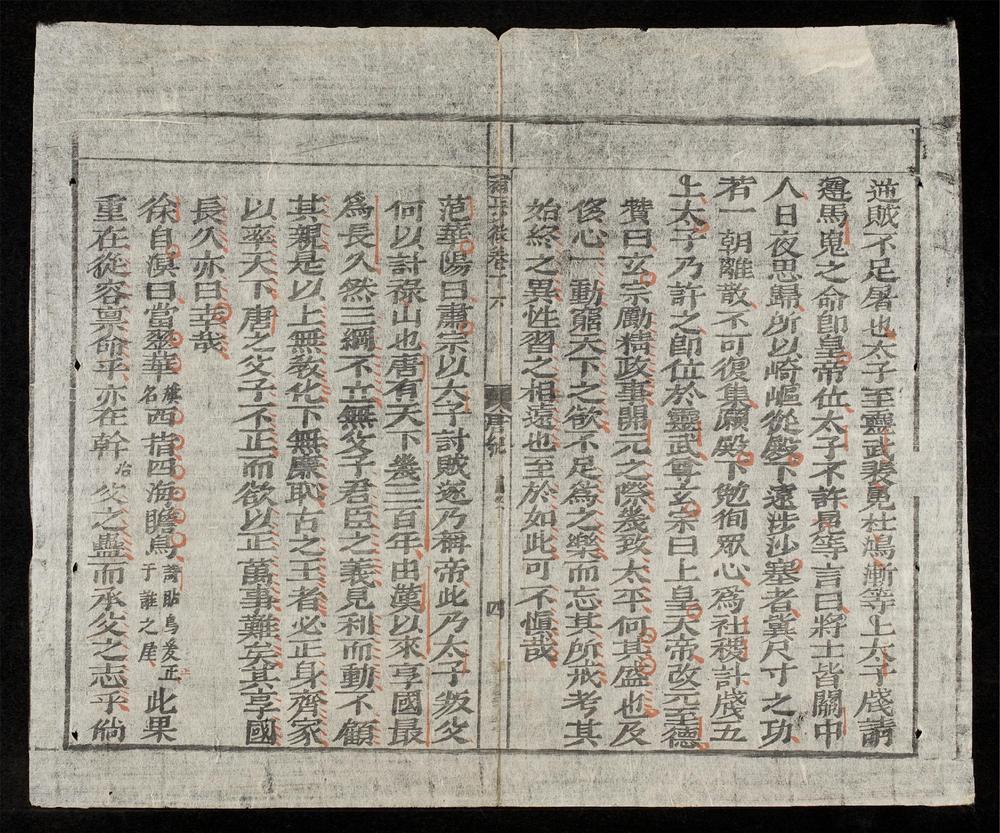 逋賊不足屠也太子至靈武裴冕杜鴻漸等上太子牋請
遵馬嵬之命即皇帝位太子不許冕等言曰將士皆關中
人日夜思歸所以崎嶇從殿下遠涉沙塞者冀尺寸之功
若一朝離散不可復集願殿下勉徇眾心為社稷計牋五
上太子乃許之即位於靈武尊玄宗曰上皇天帝改元至德
贊曰玄宗勵精政事開元之際幾致太平何其盛也及
侈心一動窮天下之欲不足為之樂而忘其所戒考其
始終之異性習之相遠也至於如此可不慎哉
卷十六
唐紀
四
范華陽曰肅宗以太子討賊遂乃稱帝此乃太子叛父
何以討祿山也唐有天下幾三百年由漢以來享國最
為長久然三綱不立無父子君臣之義見利而動不顧
其親是以上無教化下無廉恥古之王者必正身齊家
以率天下唐之父子不正而欲以正萬事難矣其享國
長久亦曰幸哉
徐自溟曰當翠華旗名西指四海瞻烏詩瞻烏爰止于誰之屋此果
重在從容稟命乎亦在幹治父之蠱而承父之志乎倘